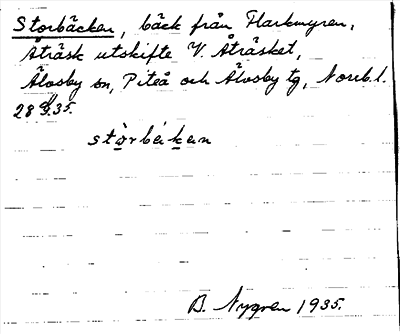 Storbäcken, bäck från Flarkmyren,
Åträsk utskifte V. Åträsket,
Älvsby sn, Piteå och Älvsby tg, Norrb. l.
28/9.35.
stòrbäken
B. Nygren 1935.